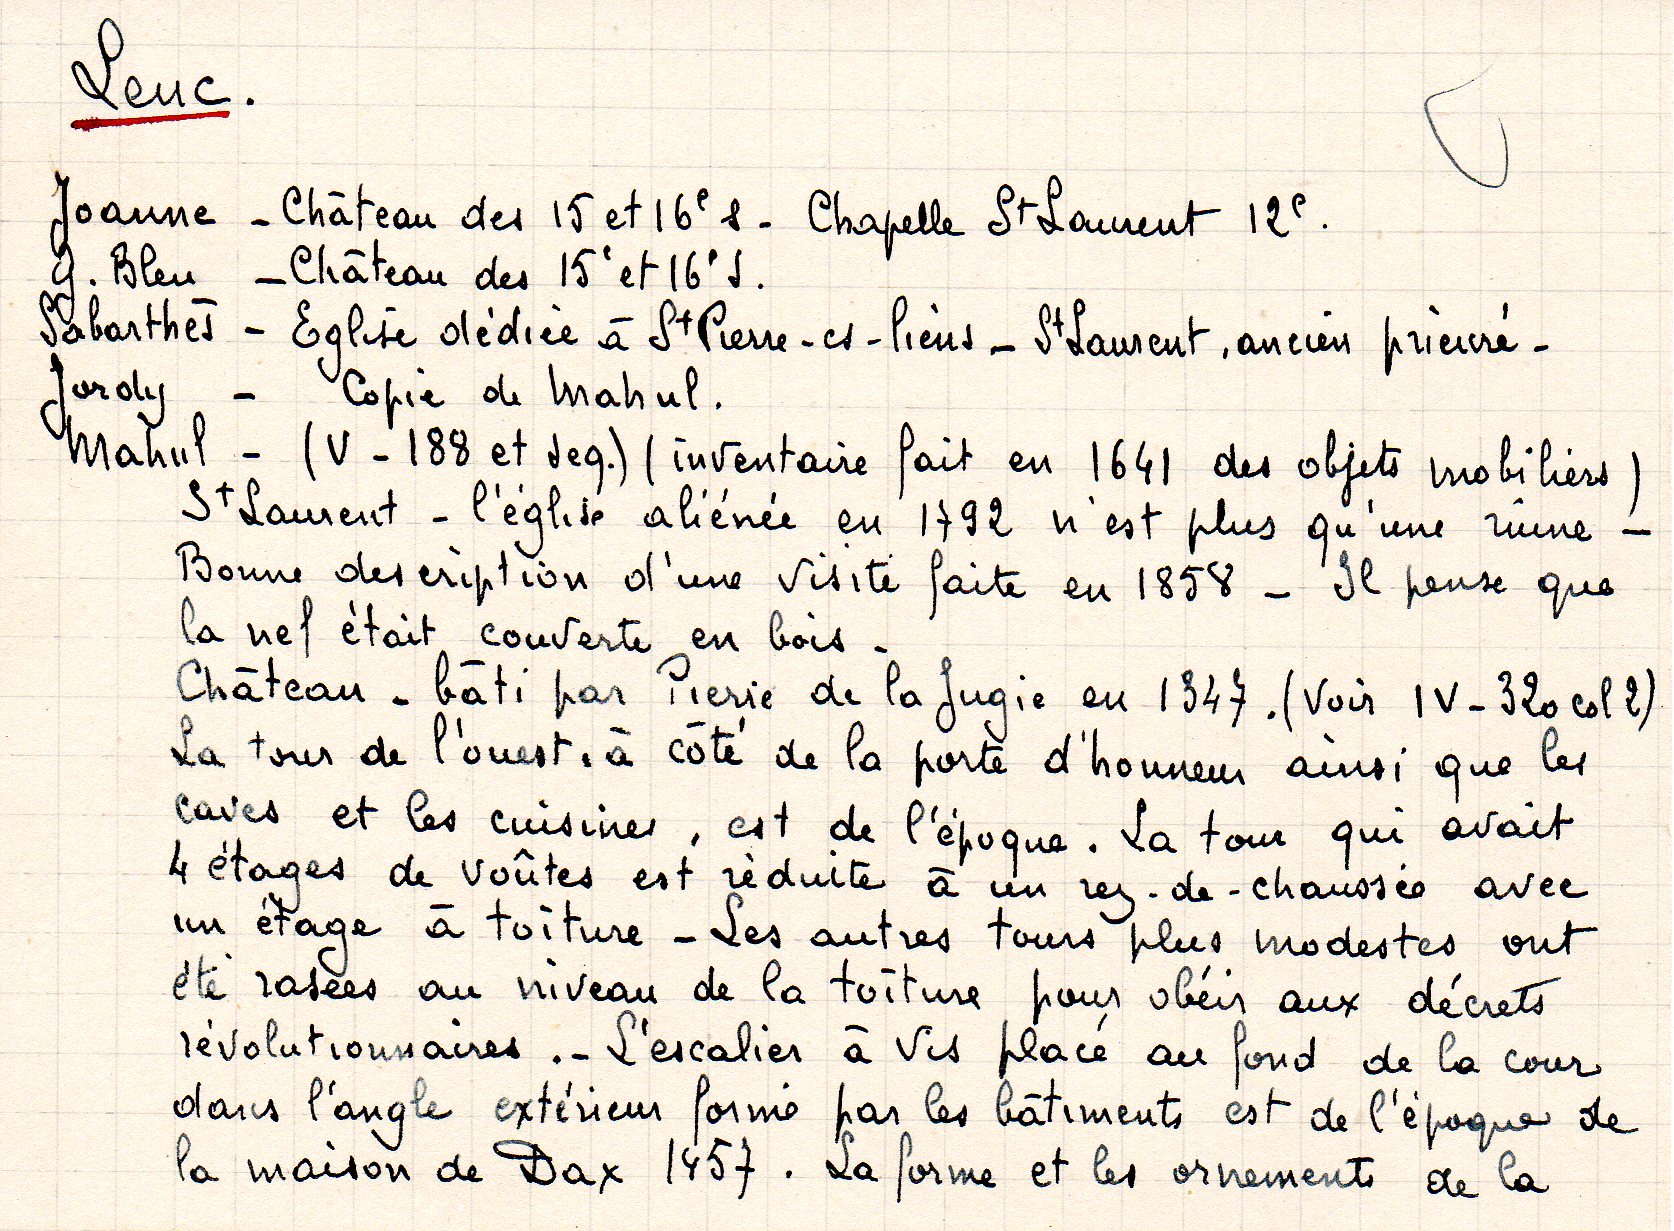 Leuc.
Joanne - Château des 15 et 16e s - Chapelle St Laurent 12e.
G. Bleu - Château des 15e et 16e s.
Sabarthès - Eglise dédiée à St Pierre-es-liens - St Laurent, ancien prieuré -
Jordy - Copie de Mahul.
Mahul - (V - 188 et seq.) (inventaire fait en 1641 des objets mobiliers)
St Laurent - l'église aliénée en 1792 n'est plus qu'une ruine -
Bonne description d'une visite faite en 1858 - Il pense que
la nef était couverte en bois -
Château - bâti par Pierre de la Jugie en 1347. (Voir IV - 320 col 2)
La tour de l'ouest, à côté de la porte d'honneur ainsi que les
caves et les cuisines, est de l'époque. La tour qui avait
4 étages de voûtes est réduite à un rez-de-chaussée avec
un étage à toiture - Les autres tours plus modestes ont
été rasées au niveau de la toiture pour obéir aux décrets
révolutionnaires. - L'escalier à vis placé au fond de la cour
dans l'angle extérieur formé par les bâtiments est de l'époque de
la maison de Dax 1457. La forme et les ornements de la